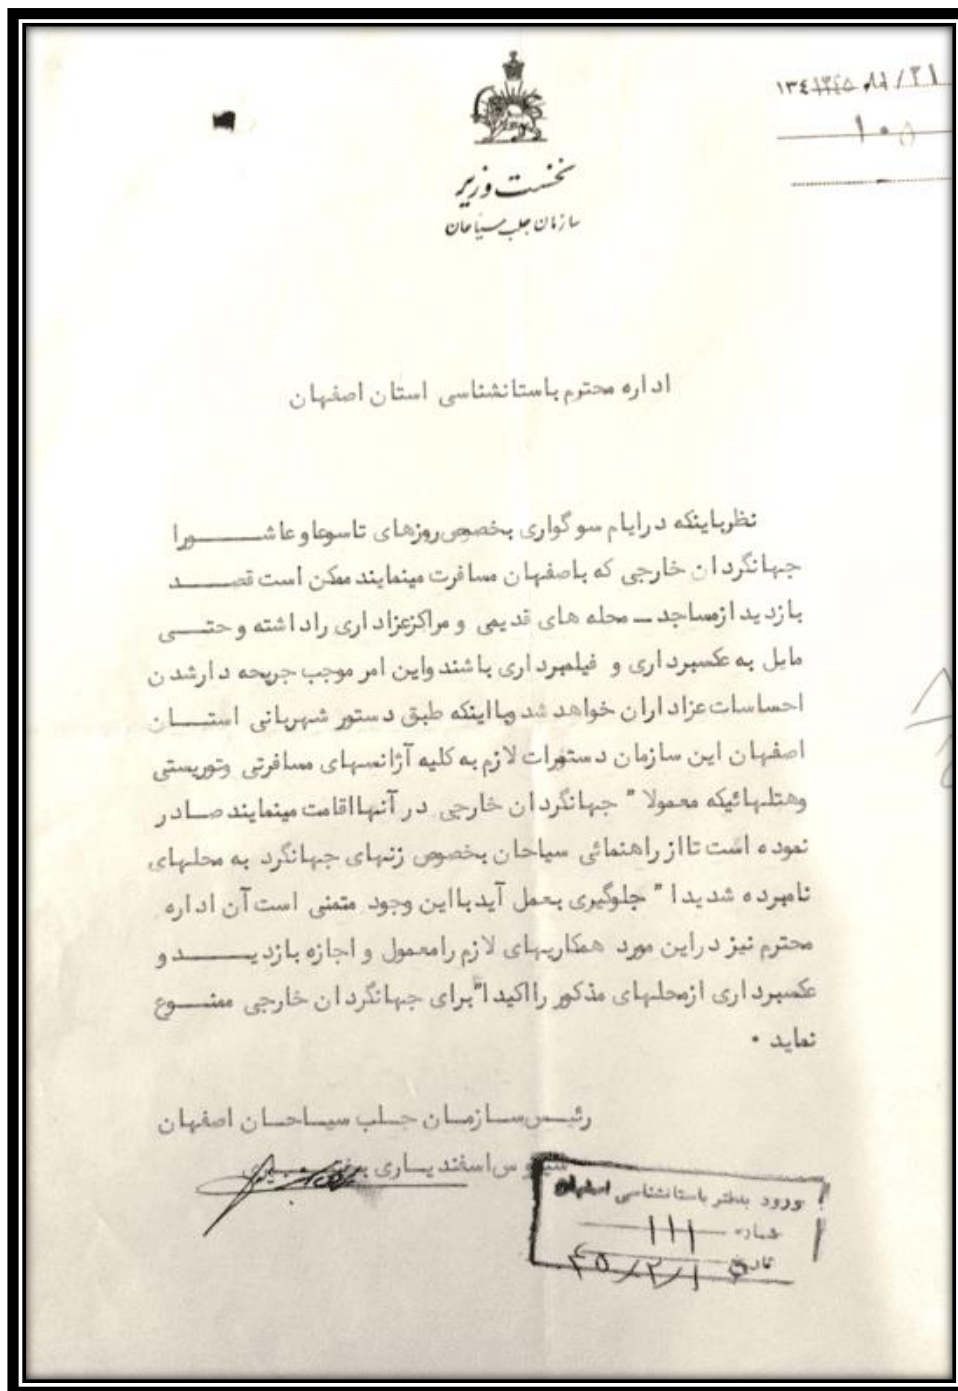 ۱۳۴
۱۰
نخست وزیر
سازمان جلب سیاحان
اداره محترم باستانشناسی استان اصفهان
نظرباینکه درایام سوگواری بخصوص روزهای تاسوعا و عاشـــــورا
جهانگردان خارجی که باصفهان مسافرت مینمایند ممکن است قصـــد
بازدید ازمساجد ـ محله های قدیمی و مراکزعزاداری راداشته و حتـــی
مایل به عکسبرداری و فیلمبرداری باشند واین امر موجب جریحه دارشدن
احساسات عزاداران خواهد شد وبااینکه طبق دستور شهربانی استـــان
اصفهان این سازمان دستورات لازم به کلیه آژانسهای مسافرتی وتوریستی
وهتلهائیکه معمولا " جهانگردان خارجی در آنهااقامت مینمایند صــادر
نموده است تااز راهنمائی سیاحان بخصوص زنهای جهانگرد به محلهای
نامبرده شدیدا " جلوگیری بعمل آید بااین وجود متمنی است آن اداره
محترم نیز دراین مورد همکاریهای لازم رامعمول و اجازه بازدیـــــد و
عکسبرداری ازمحلهای مذکور رااکیدا"برای جهانگردان خارجی ممنـــوع
نماید .
رئیس ســازمــان جــلب سیــاحــان اصفهان
اسفندیــاری
ورود بدفتر باستانشناسی اصفهان
شماره ۱۱۱
تاریخ